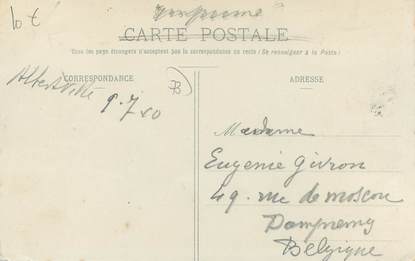 10 €
CARTE POSTALE
Tous les pays étrangers n'acceptent pas la correspondance au recto (Se renseigner à la Poste)
CORRESPONDANCE
ADRESSE
Albertville
9.7.80
73
Madame
Eugenie Givron
49. rue de moscou
Dampremy
Belgique